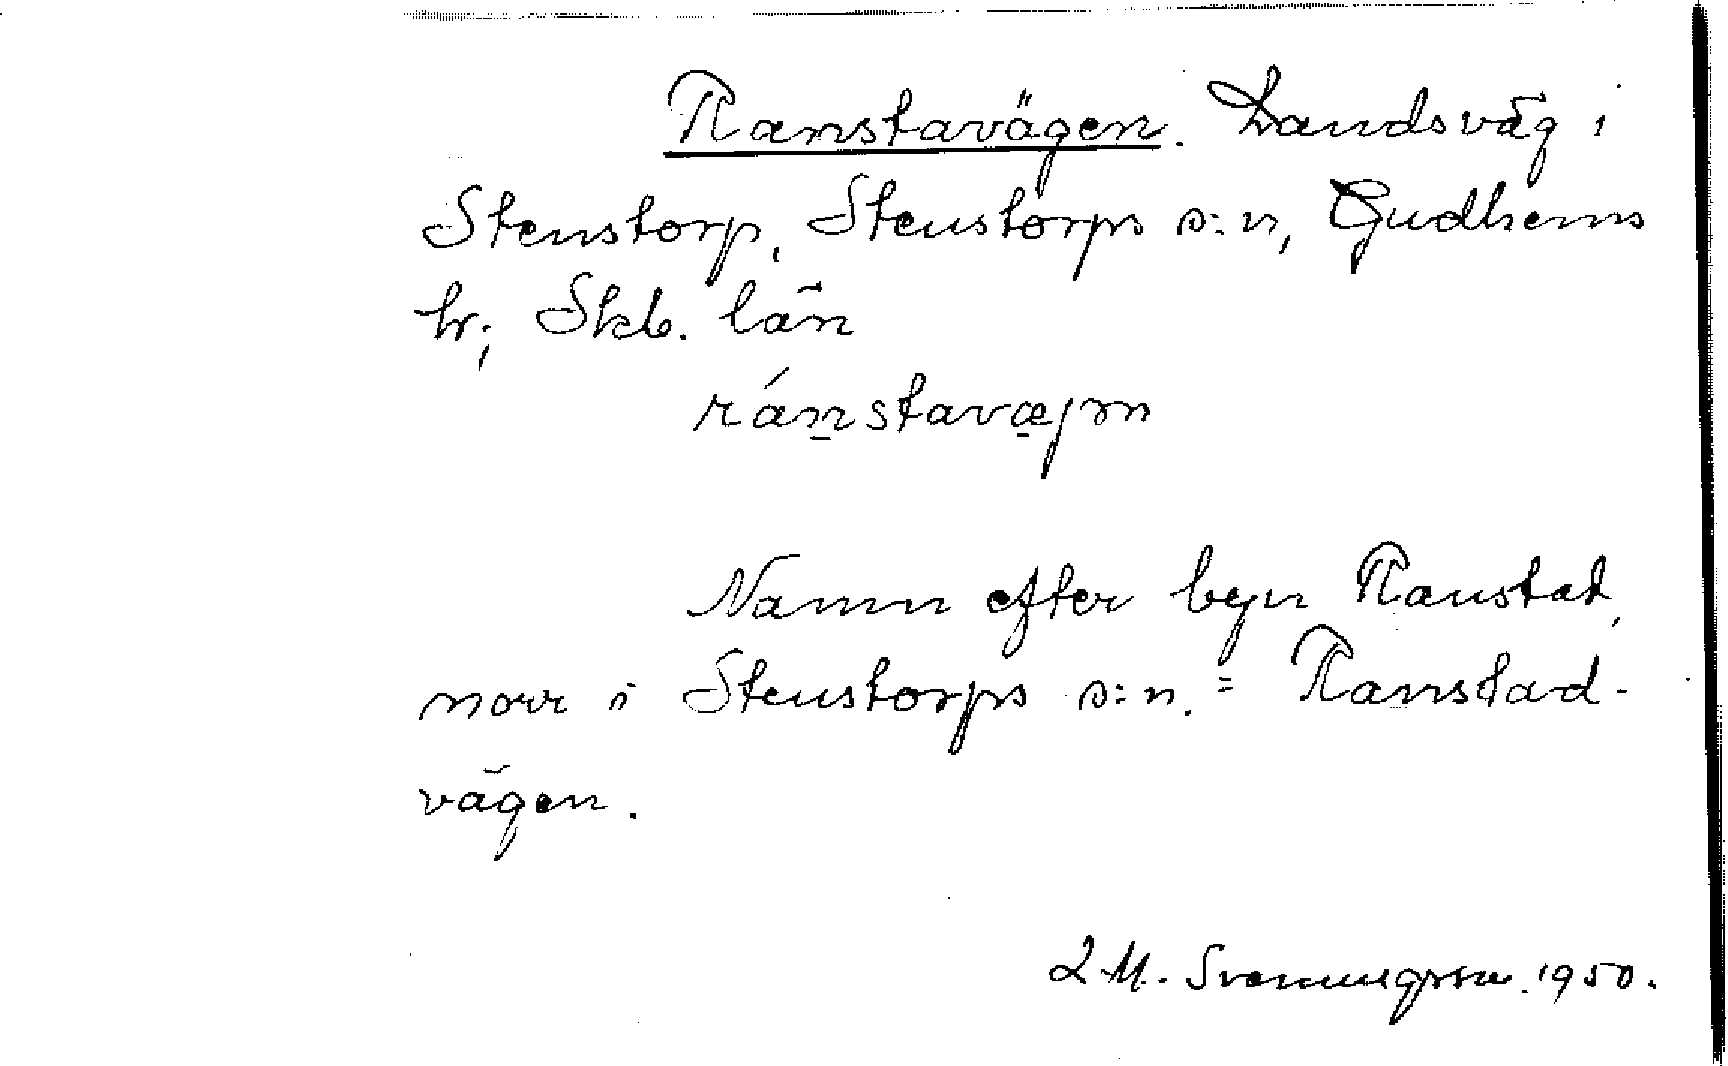 Ranstavägen. Landsväg i
Stenstorp, Stenstorps s:n, Gudhems
hr, Skb. län
ránstavæjrn
Namn efter byn Ranstad,
norr i Stenstorps s:n. = Ranstad-
vägen.
L M. Svenungsson. 1950.